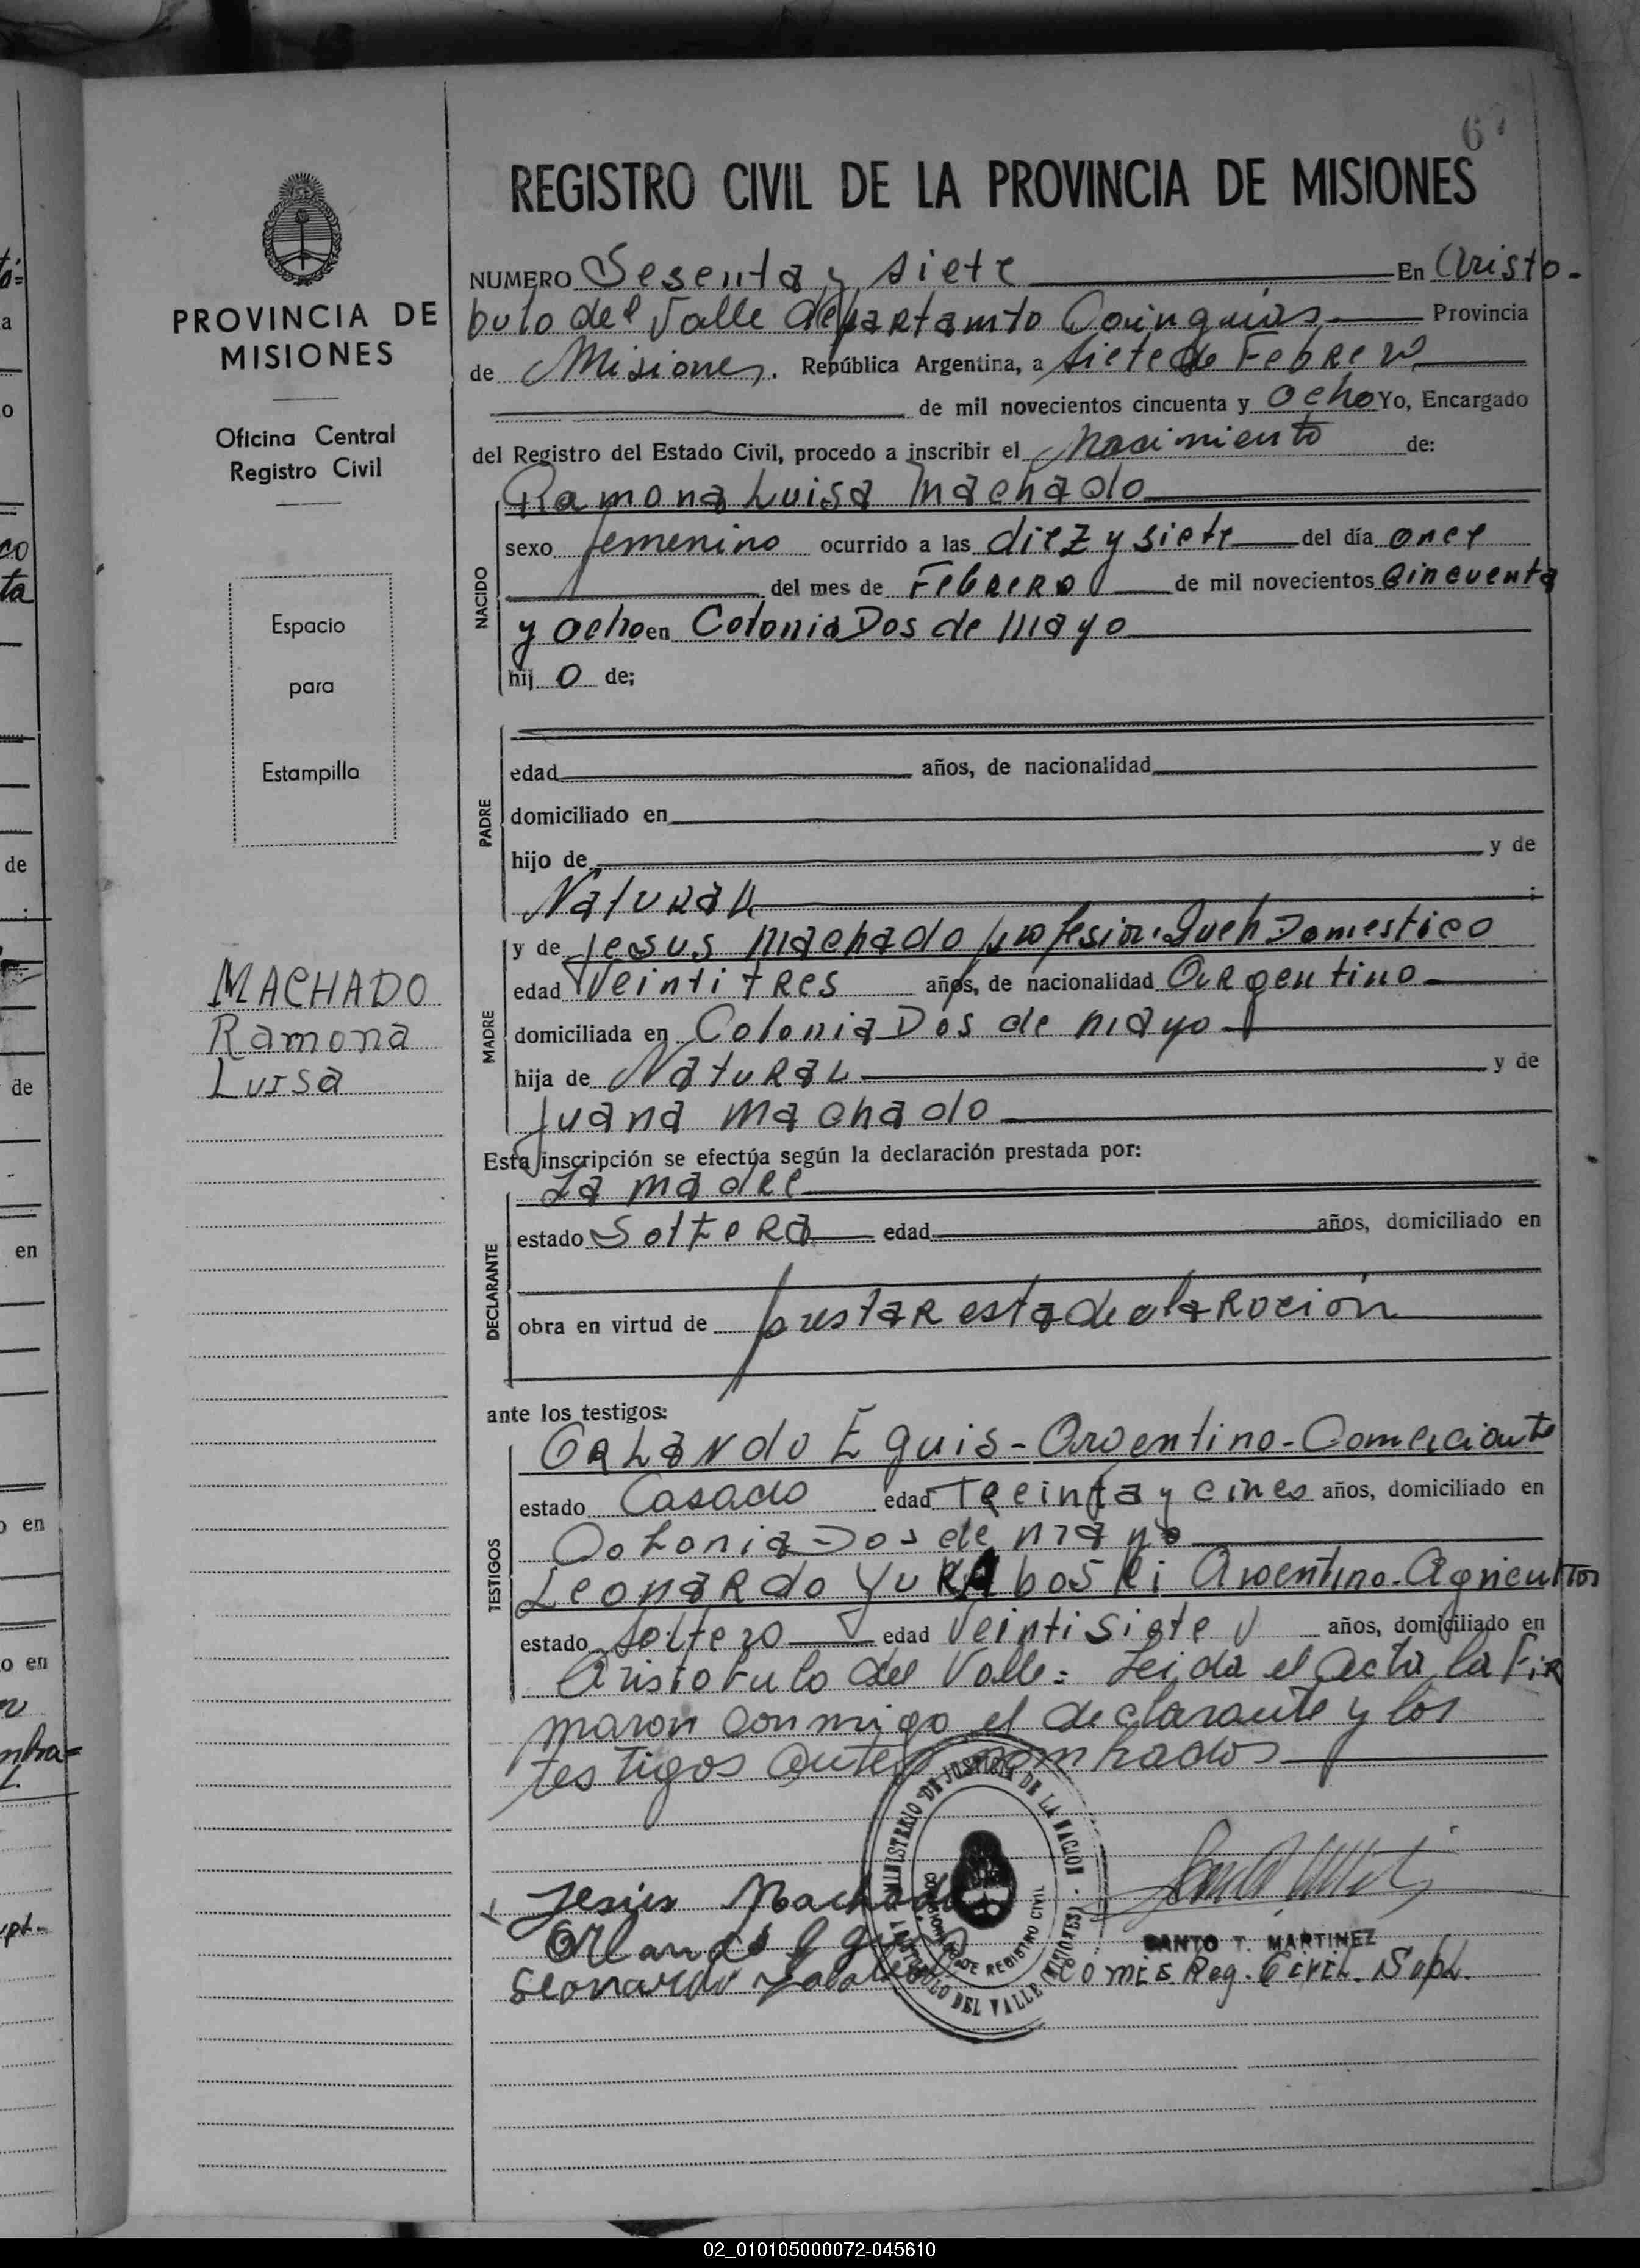 6
REGISTRO CIVIL DE LA PROVINCIA DE MISIONES
NUMERO Sesenta y siete En Aristo-
bulo del Valle departamto Cainguas Provincia
de Misiones. República Argentina, a siete de Febrero
de mil novecientos cincuenta y ocho Yo, Encargado
del Registro del Estado Civil, procedo a inscribir el Nacimiento de:
Ramona Luisa Machado
NACIDO
sexo femenino ocurrido a las diez y siete del día once
del mes de Febrero de mil novecientos Cincuenta
y ocho en Colonia Dos de Mayo
hij o de;
PADRE
edad años, de nacionalidad
domiciliado en
hijo de y de
Natural ;
MADRE
y de Jesus Machado profesion Domestico
edad Veintitres años, de nacionalidad Argentino
domiciliada en Colonia Dos de Mayo
hija de Natural y de
Juana Machado
Esta inscripción se efectúa según la declaración prestada por:
DECLARANTE
La madre
estado Soltera edad años, domiciliado en
obra en virtud de prestar esta declaracion
ante los testigos:
TESTIGOS
Orlando Eguis - Argentino - Comerciante
estado Casado edad Treinta y cinco años, domiciliado en
Colonia Dos de Mayo
Leonardo Argentino - Agricultor
estado Soltero edad Veintisiete años, domiciliado en
Aristobulo del Valle: Leida el Acta la Fir
maron conmigo el declarante y los
testigos antes nombrados
Jesus Machado
Orlando
Leonardo
MINISTERIO DE JUSTICIA DE LA NACION
DE REGISTRO CIVIL
ARISTOBULO DEL VALLE (MISIONES)
SANTO T. MARTINEZ
Comis. Reg. Civil. Supl.
PROVINCIA DE
MISIONES
Oficina Central
Registro Civil
Espacio
para
Estampilla
MACHADO
Ramona
Luisa
02_010105000072-045610